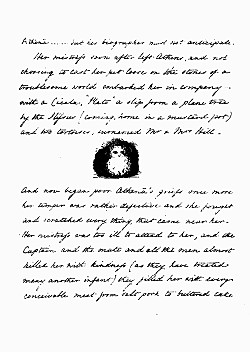 Athena ..... but her biographer must not anticipate.
Her mistress soon after left Athens, and not
choosing to cast her pet loose on the stones of a
troublesome world embarked her in company
with a Cicala, "Plato" a slip from a plane tree
by the Ilissus (coming home in a mustard pot)
and two tortoises, surnamed Mr & Mrs Hill.
And now began poor Athena's griefs once more
her temper was rather defective and she fought
and scratched every thing that came near her.
Her mistress was too ill to attend to her, and the
Captain and the mate and all the men almost
killed her with kindness (as they have treated
many another infant) they filled her with every
conceivable meat from salt pork to buttered cake